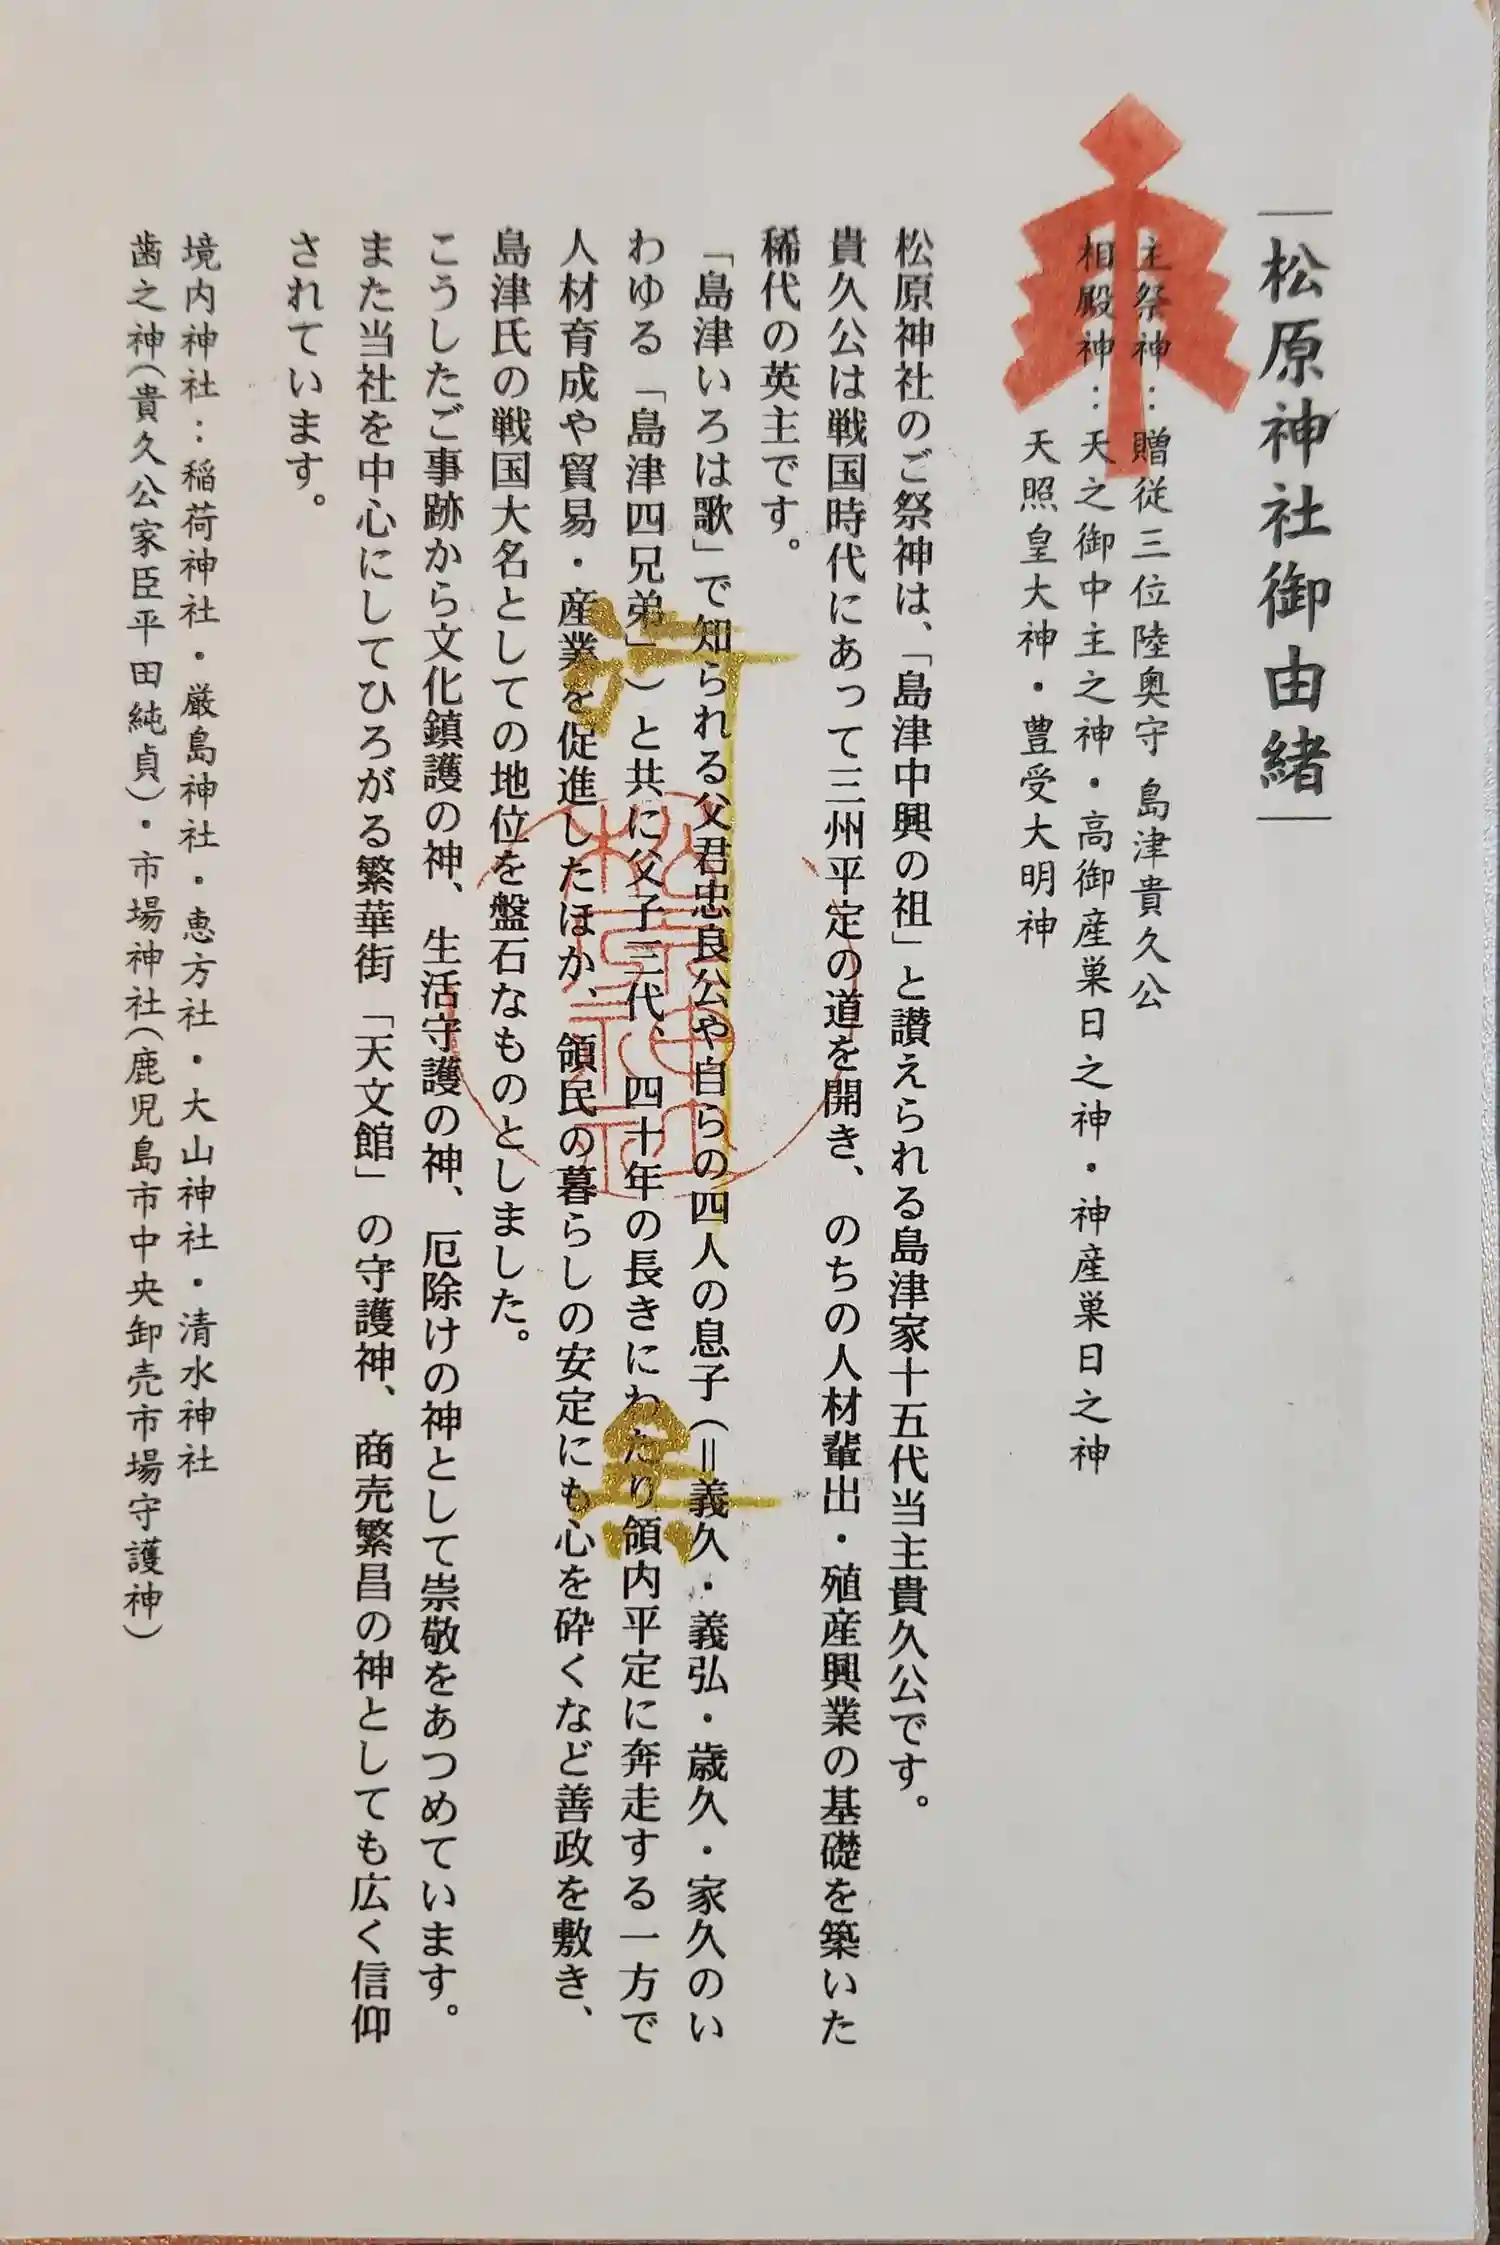 松原神社御由緒
主祭神：贈従三位陸奥守 島津貴久公
相殿神：天之御中主之神・高御産巣日之神・神産巣日之神
天照皇大神・豊受大明神
松原神社のご祭神は、「島津中興の祖」と讃えられる島津家十五代当主貴久公です。
貴久公は戦国時代にあって三州平定の道を開き、のちの人材輩出・殖産興業の基礎を築いた
稀代の英主です。
「島津いろは歌」で知られる父君忠良公や自らの四人の息子（＝義久・義弘・歳久・家久のい
わゆる「島津四兄弟」）と共に父子三代、四十年の長きにわたり領内平定に奔走する一方で
人材育成や貿易・産業を促進したほか、領民の暮らしの安定にも心を砕くなど善政を敷き、
島津氏の戦国大名としての地位を盤石なものとしました。
こうしたご事跡から文化鎮護の神、生活守護の神、厄除けの神として崇敬をあつめています。
また当社を中心にしてひろがる繁華街「天文館」の守護神、商売繁昌の神としても広く信仰
されています。
境内神社：稲荷神社・厳島神社・恵方社・大山神社・清水神社
歯之神（貴久公家臣平田純貞）・市場神社（鹿児島市中央卸売市場守護神）
松原神社